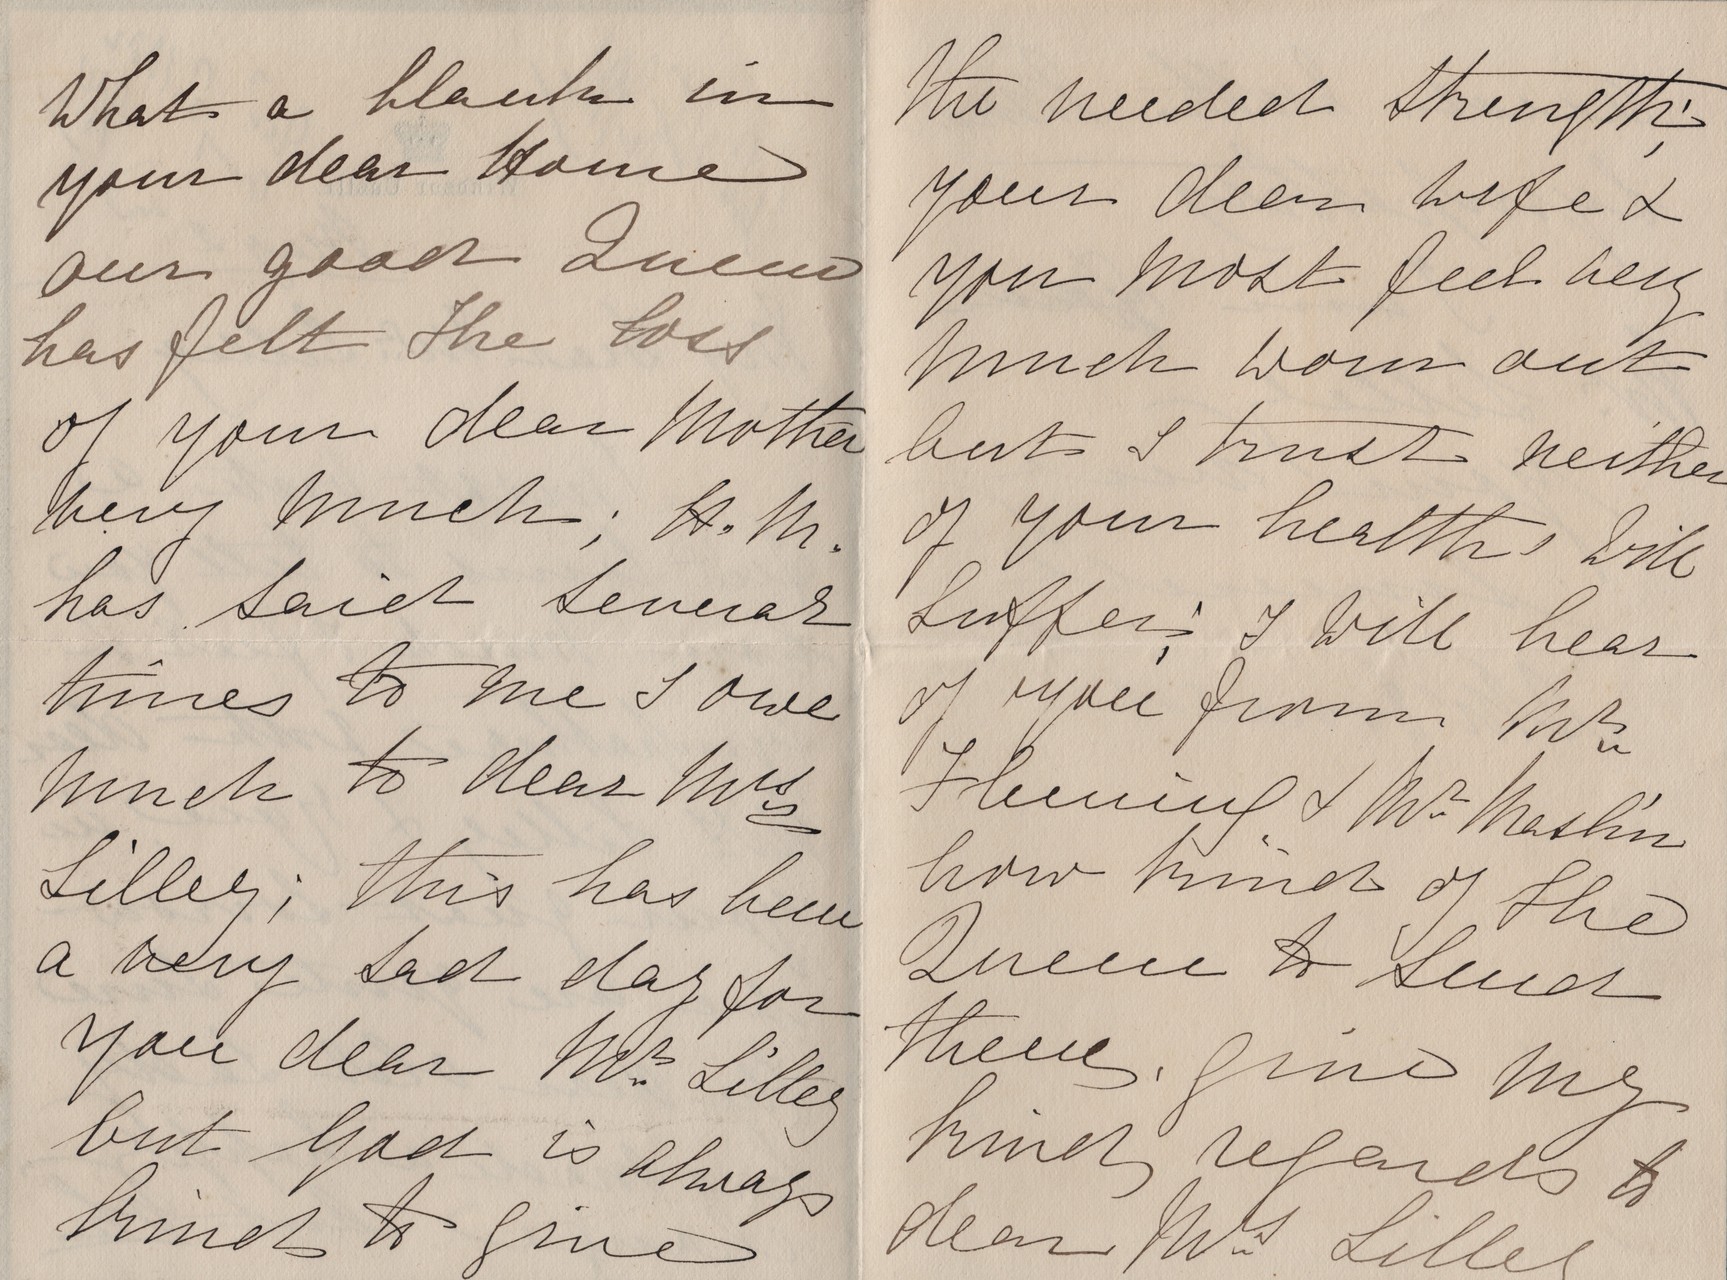 What a blank in
your dear Home
our good Queen
has felt the loss
of your dear Mother
very much; H. M.
has said several
times to me I owe
much to dear Mrs
Lilley; this has been
a very sad day for
you dear Mr. Lilley
but God is always
kind to give
the needed strength;
your dear wife &
you most feel very
much worn out
but I trust neither
of your healths will
suffer; I will hear
of you from Mr
Fleming & Mr Maslin
how kind of the
Queen to send
them. give my
kind regards to
dear Mrs Lilley